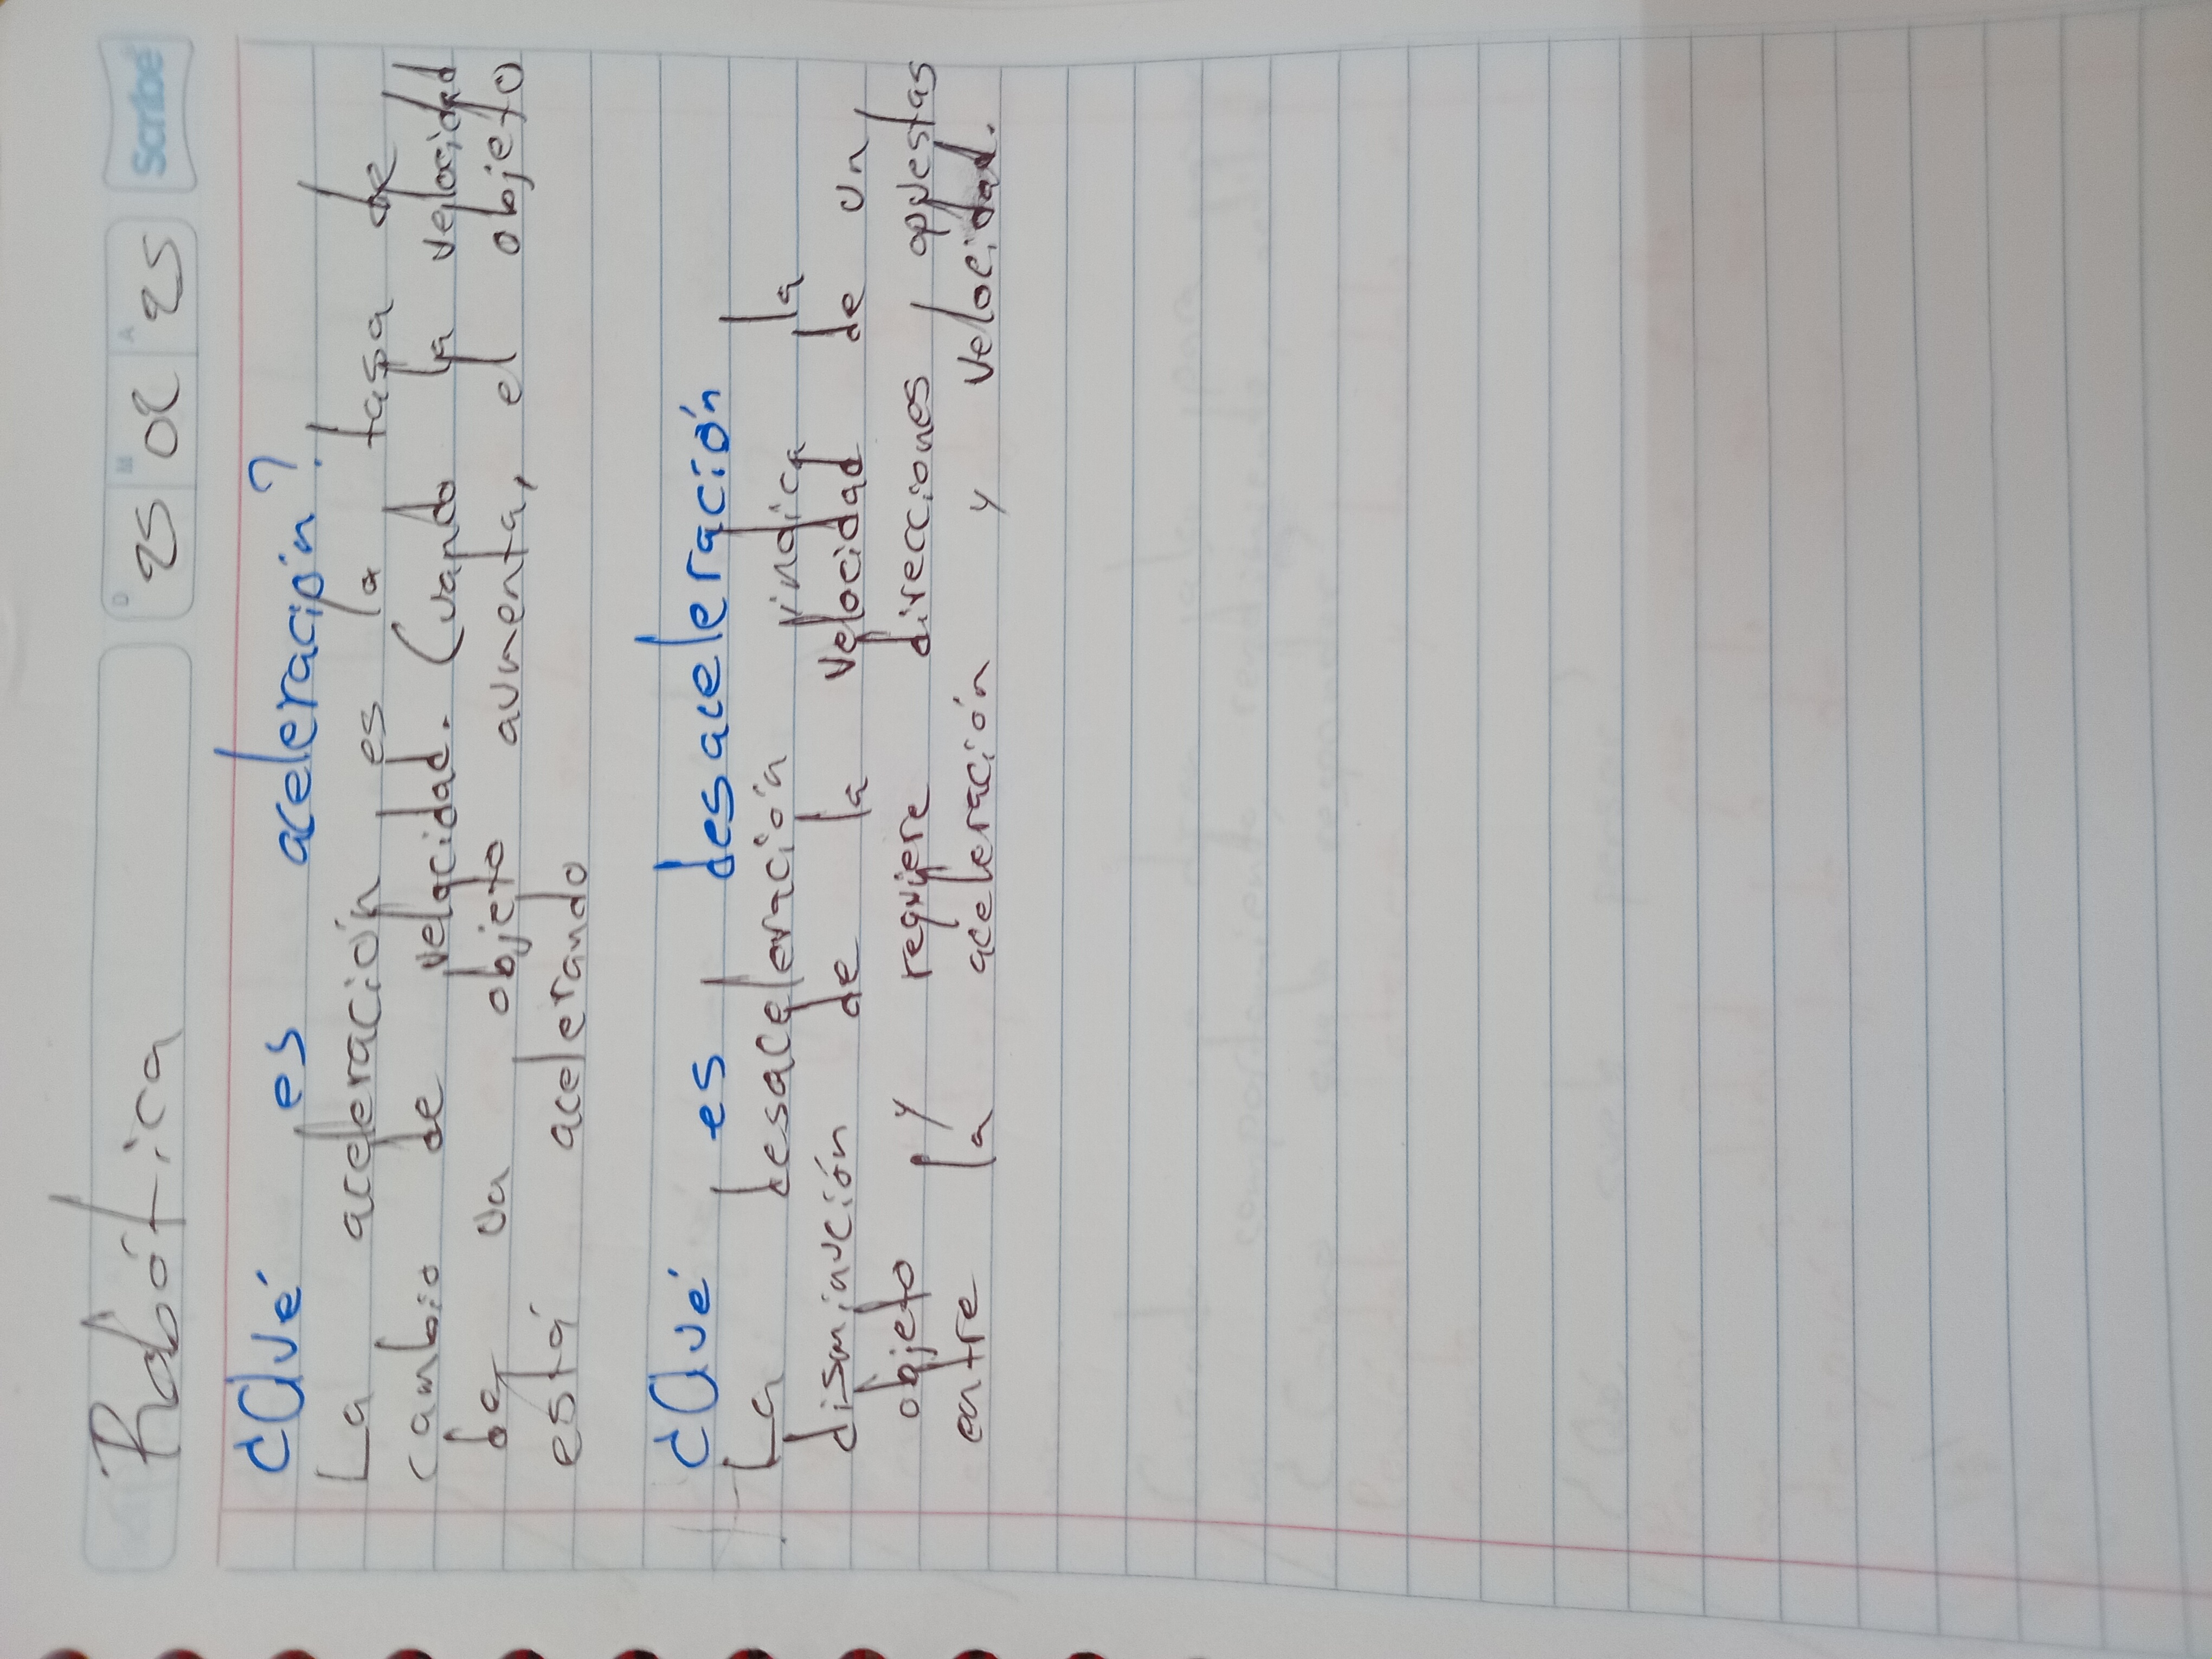 Robótica
D 25 M 02 A 25
Scribe
¿Qué es aceleración?
La aceleración es la tasa de
cambio de velocidad. Cuando la velocidad
de un objeto aumenta, el objeto
está acelerando
¿Qué es desaceleración
La desaceleración indica la
disminución de la velocidad de un
objeto y requiere direcciones opuestas
entre la aceleración y velocidad.